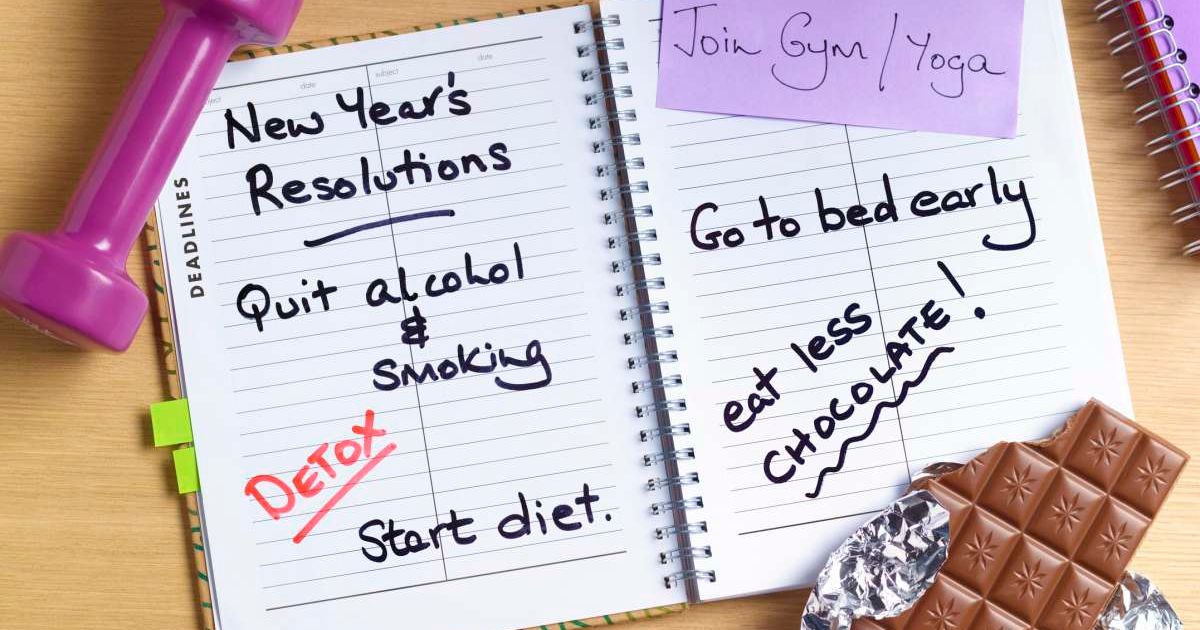 subject date subject date
New Year's
Resolutions
DEADLINES
Quit alcohol
&
Smoking
DETOX
Start diet.
Join Gym / Yoga
Go to bed early
eat less
CHOCOLATE!